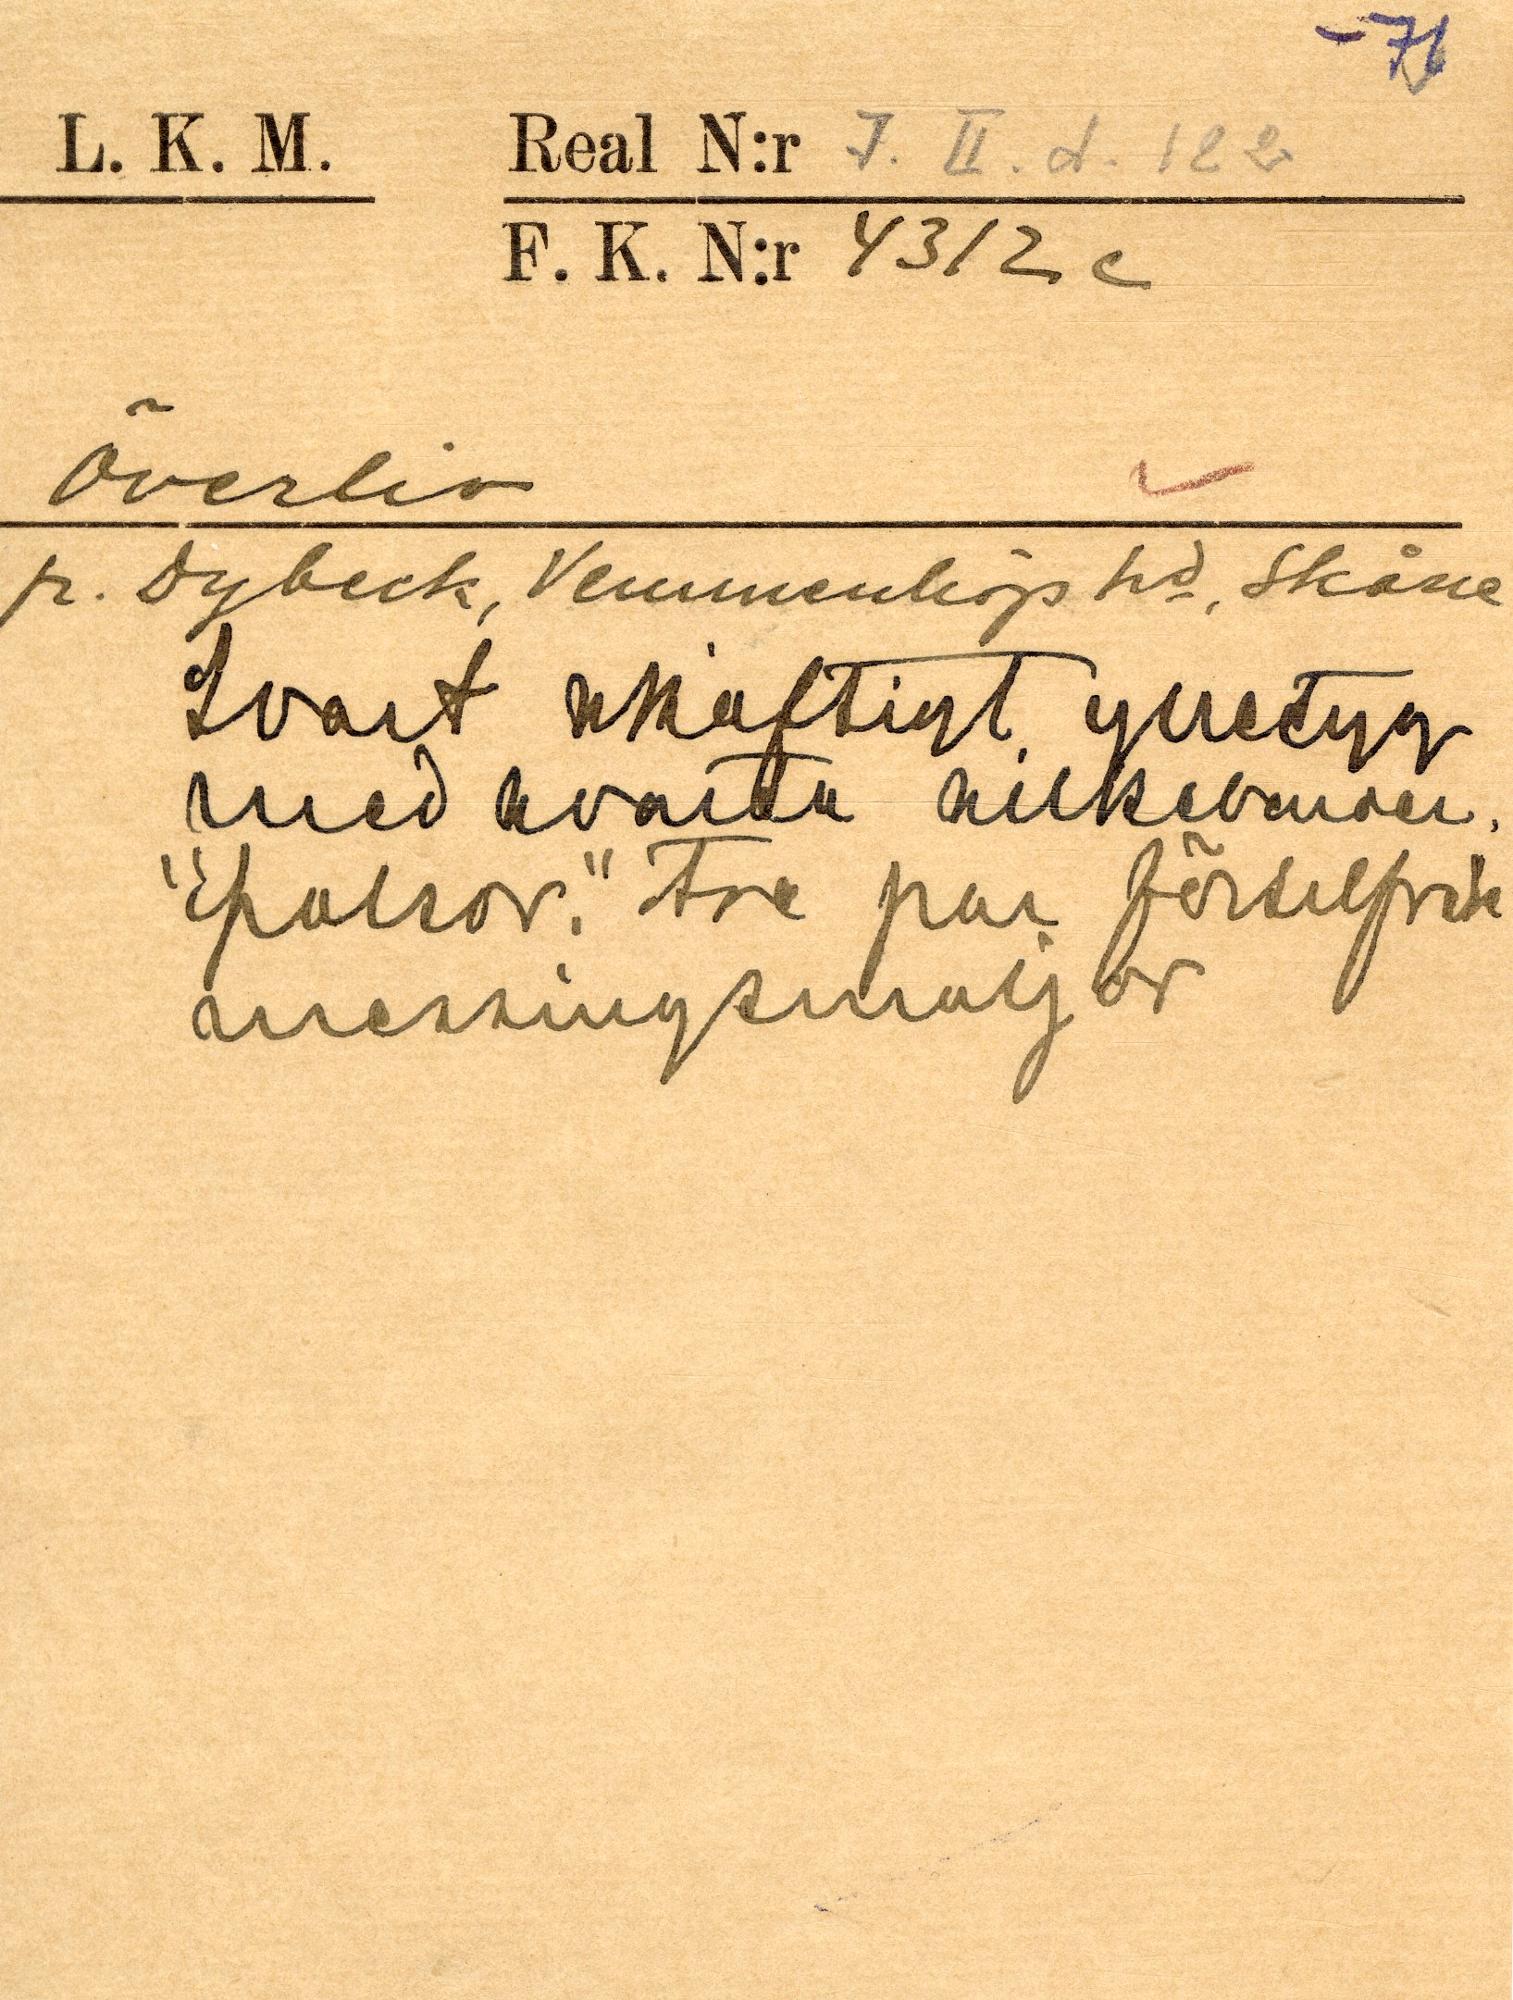 -71
L. K. M.
Real N:r J. II. d. 122
F. K. N:r 4312 c
Överliv
fr. Dybeck, Vemmenhögs hd, Skåne
Svart skäftigt ylletyg
med svarta silkebander.
"pålsor." Tre par
messingsmaljor